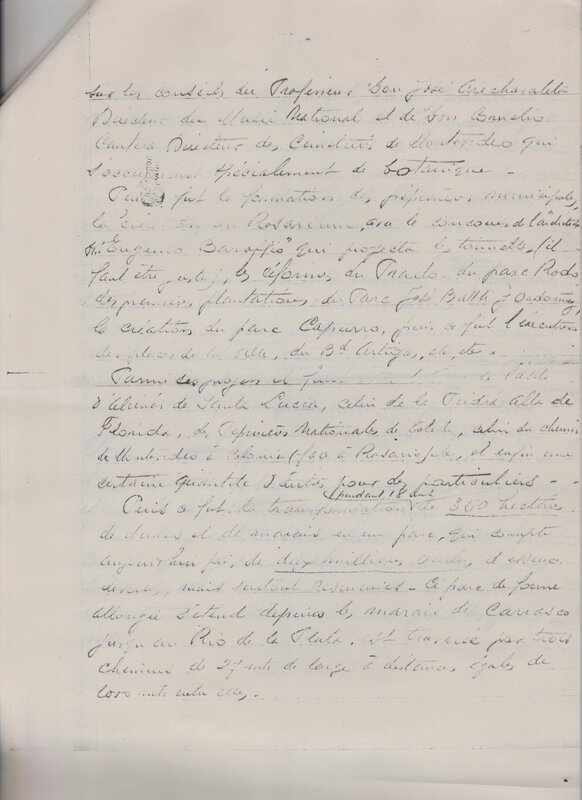 sur les conseils du Professeur Don José Arechavaleta
Directeur du Musée National et de Don
Cantera Directeur des Cimetières de Montevideo qui
spécialement de botanique -
Puis fut la formation des pépinières municipales,
la en Rosareum, avec le concours de l'architecte
"Eugenio Baroffio" qui projeta les tonnelles, (il
faut être juste), les réformes du Prado, du parc Rodo,
des premières plantations du Parc José Battle y Ordoñez,
la création du parc Capurro, puis ce fut l'exécution
des places de la ville, du Bd Artigas, etc, etc. -
Parmi ses projets il
de Santa Lucia, celui de la Piedra Alta de
Florida, des Pépinières Nationales de , celui du chemin
de Montevideo à Colonia, à Rosario, etc, et enfin une
certaine quantité d'autres pour des particuliers - -
pendant 18 ans
Puis ce fut la transformation de 360 hectares
de dunes et de marais en un parc, qui compte
aujourd'hui plus de deux millions
mais surtout résineuses - Ce parc de forme
allongée s'étend depuis les marais de Carrasco
jusqu'au Rio de la Plata, est traversé par trois
chemins de 27 mts de large à distances égales de
1000 mts entre elles. -